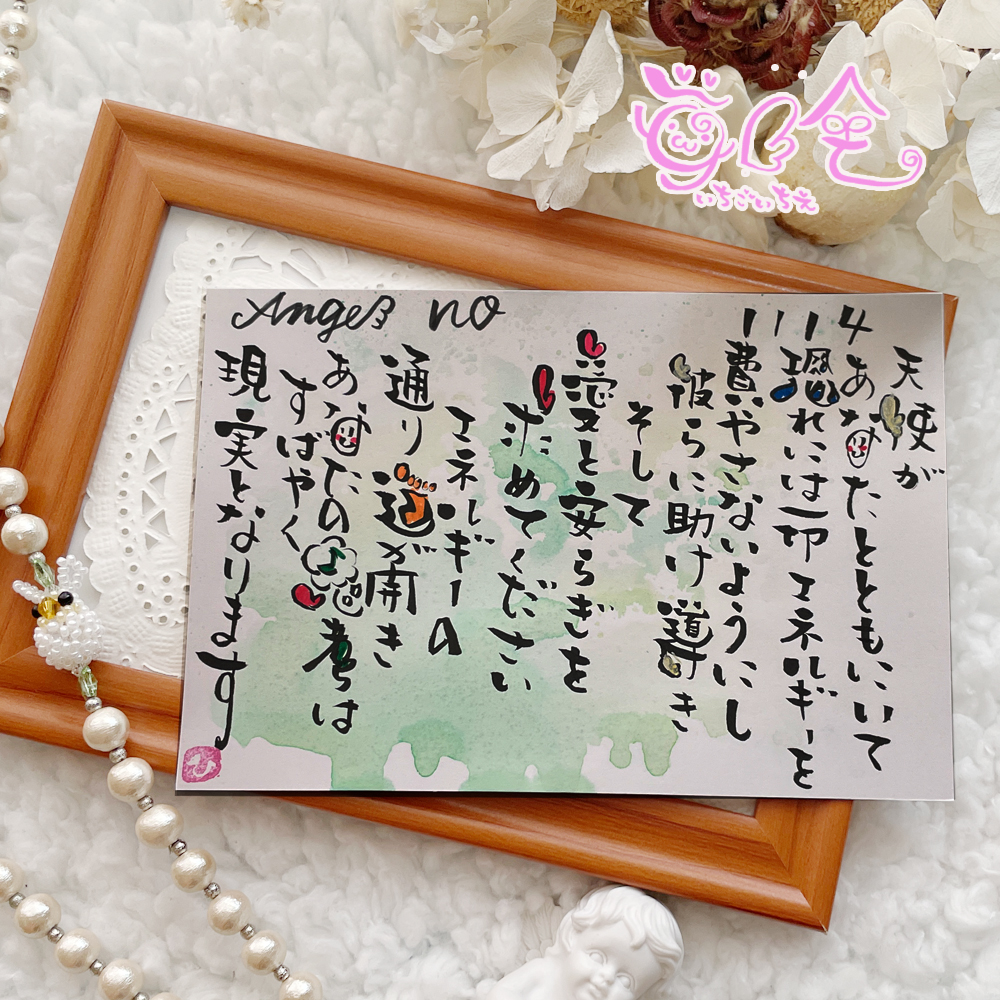 Angel no 1114
天使が
あなたとともにいて
恐れには一切エネルギーを
費やさないようにし
彼らに助け導き
そして
愛と安らぎを
求めてください
エネルギーの
通り道が開き
あなたの思考は
すばやく
現実となります
ひ
いちごいちえ